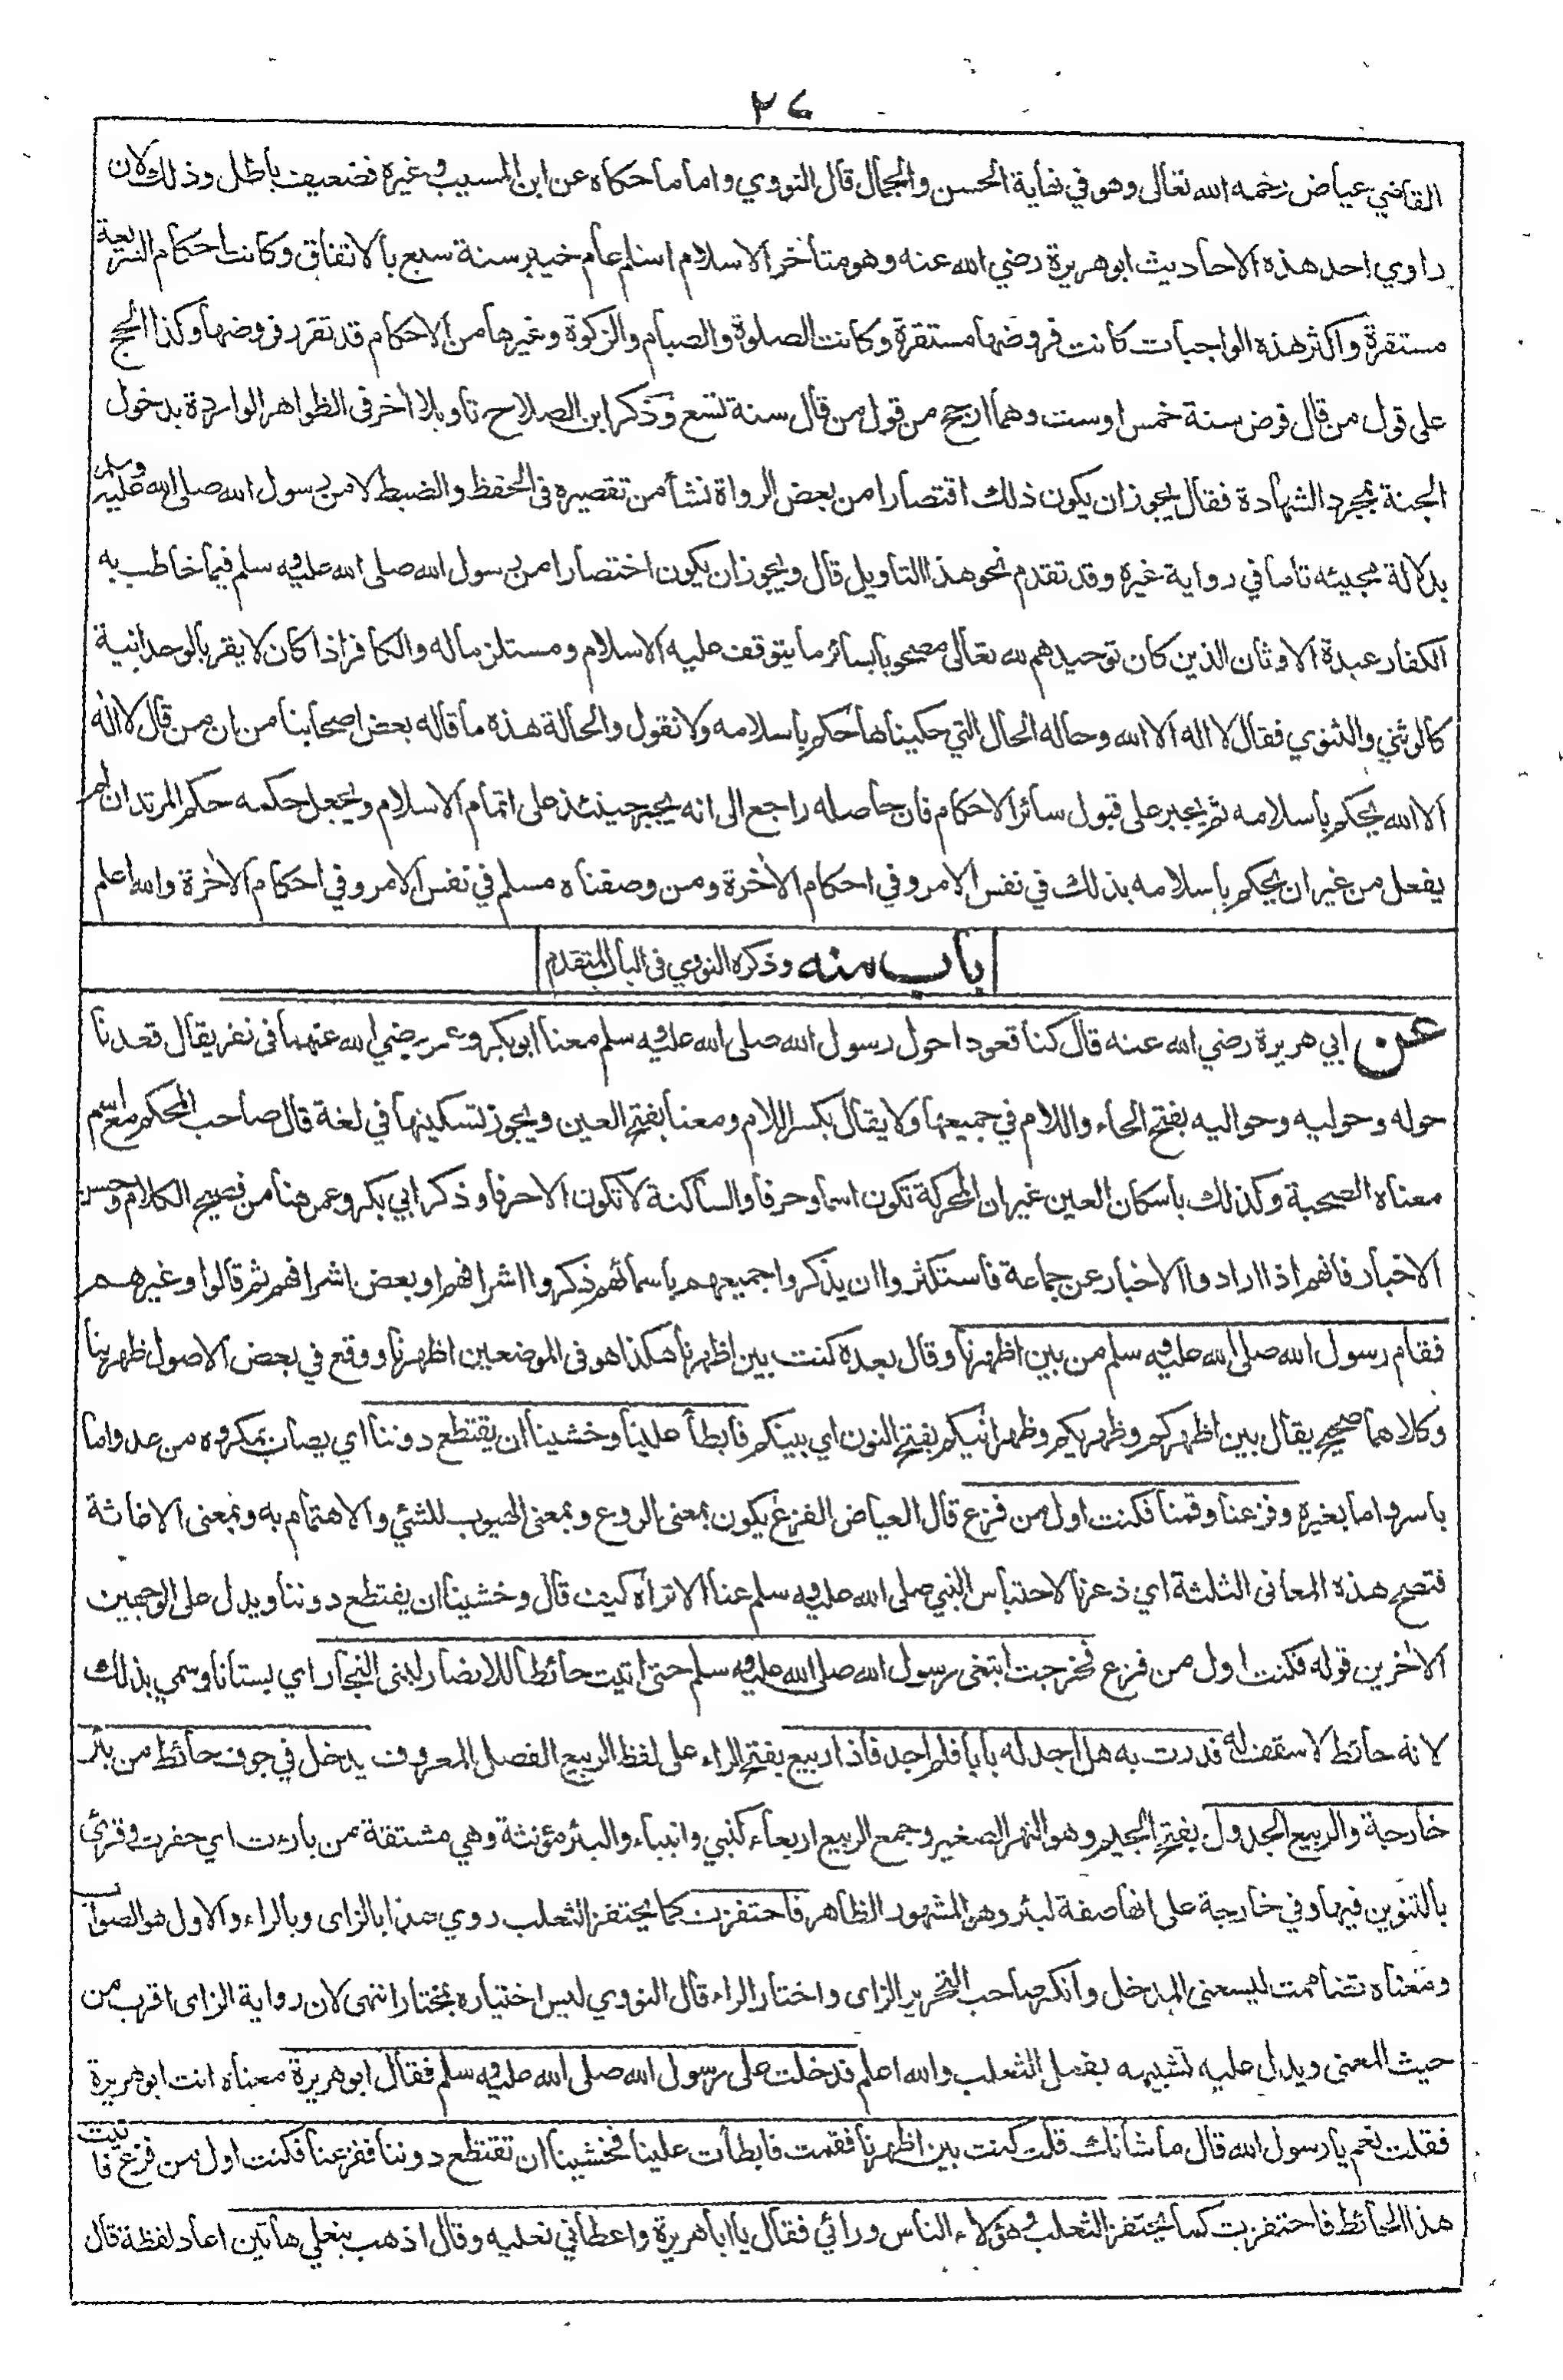 ٢٤
القاضي عياض رحمه الله تعالى وهو في نهاية الحسن والجمال قال النووي واما ما حكاه عن ابن المسيب وغيره فضعيف باطل وذلك لان
راوي احد هذه الاحاديث ابو هريرة رضي الله عنه وهو متأخر الاسلام اسلم عام خيبر سنة سبع بالاتفاق وكانت احكام الشريعة
مستقرة واكثر هذه الواجبات كانت فروضها مستقرة وكانت الصلوة والصيام والزكوة وغيرها من الاحكام قد تقرر فروضها وكذا الحج
على قول من قال فرض سنة خمس او ست وهما ارجح من قول من قال سنة تسع وذكر ابن الصلاح تاويلا اخر في الظواهر الواردة بدخول
الجنة بمجرد الشهادة فقال يجوز ان يكون ذلك اقتصارا من بعض الرواة نشأ من تقصيره في الحفظ والضبط لا من رسول الله صلى الله عليه وسلم
بدلالة مجيئه تاما في رواية غيره وقد تقدم نحو هذا التاويل قال ويجوز ان يكون اختصارا من رسول الله صلى الله عليه وسلم فيما خاطب به
الكفار عبدة الاوثان الذين كان توحيدهم لله تعالى مصحوبا بسائر ما يتوقف عليه الاسلام ومستلزما له والكافر اذا كان لا يقر بالوحدانية
كالوثني والثنوي فقال لا اله الا الله وحاله الحال التي حكيناها حكم باسلامه ولا نقول والحالة هذه ما قاله بعض اصحابنا من ان من قال لا اله
الا الله يحكم باسلامه ثم يجبر على قبول سائر الاحكام فان حاصله راجع الى انه يجبر حينئذ على اتمام الاسلام ويجعل حكمه حكم المرتد ان لم
يفعل من غير ان يحكم باسلامه بذلك في نفس الامر وفي احكام الاخرة ومن وصفناه مسلم في نفس الامر وفي احكام الاخرة والله اعلم
باب منه وذكره النووي في الباب المتقدم
عن ابي هريرة رضي الله عنه قال كنا قعودا حول رسول الله صلى الله عليه وسلم معنا ابو بكر وعمر رضي الله عنهما في نفر يقال قعدنا
حوله وحوليه وحواليه بفتح الحاء واللام في جميعها ولا يقال بكسر اللام ومعنا بفتح العين ويجوز تسكينها في لغة قال صاحب المحكم مع اسم
معناه الصحبة وكذلك باسكان العين غير ان المحركة تكون اسما وحرفا والساكنة لا تكون الا حرفا وذكر ابي بكر وعمر هنا من فصيح الكلام وحسن
الاخبار فانهم اذا ارادوا الاخبار عن جماعة فاستكثروا ان يذكروا جميعهم باسمائهم ذكروا اشرافهم او بعض اشرافهم ثم قالوا وغيرهم
فقام رسول الله صلى الله عليه وسلم من بين اظهرنا وقال بعده كنت بين اظهرنا هكذا هو في الموضعين اظهرنا ووقع في بعض الاصول ظهرينا
وكلاهما صحيح يقال بين اظهركم وظهريكم وظهرانيكم بفتح النون اي بينكم فابطأ علينا وخشينا ان يقتطع دوننا اي يصاب بمكروه من عدو اما
باسر واما بغيره وفزعنا وقمنا فكنت اول من فزع قال العياض الفزع يكون بمعنى الروع وبمعنى الهبوب للشئ والاهتمام به وبمعنى الاغاثة
فتصح هذه المعاني الثلثة اي ذعرنا لاحتباس النبي صلى الله عليه وسلم عنا الا تراه كيف قال وخشينا ان يقتطع دوننا ويدل على الوجهين
الاخرين قوله فكنت اول من فزع فخرجت ابتغى رسول الله صلى الله عليه وسلم حتى اتيت حائطا للانصار لبنى النجار اي بستانا وسمي بذلك
لانه حائط لا سقف له فدرت به هل اجد له بابا فلم اجد فاذا ربيع بفتح الراء على لفظ الربيع الفصل المعروف يدخل في جوف حائط من بئر
خارجة والربيع الجدول بفتح الجيم وهو النهر الصغير وجمع الربيع اربعاء كنبي وانبياء والبئر مؤنثة وهي مشتقة من بارءت اي حفرت وقرئ
بالتنوين فيها وفي خارجة على انها صفة لبئر وهو المشهور الظاهر فاحتفزت كما يحتفز الثعلب روي هذا بالزاى وبالراء والاول هو الصواب
ومعناه تضاممت ليسعنى المدخل وانكر صاحب التحرير الزاى واختار الراء قال النووي ليس اختياره بمختار انتهى لان رواية الزاى اقرب من
حيث المعنى ويدل عليه تشبيهه بفعل الثعلب والله اعلم فدخلت على رسول الله صلى الله عليه وسلم فقال ابو هريرة معناه انت ابو هريرة
فقلت نعم يا رسول الله قال ما شانك قلت كنت بين اظهرنا فقمت فابطأت علينا فخشينا ان تقتطع دوننا ففزعنا فكنت اول من فزع فاتيت
هذا الحائط فاحتفزت كما يحتفز الثعلب وهؤلاء الناس ورائي فقال يا ابا هريرة واعطاني نعليه وقال اذهب بنعلي هاتين اعاد لفظة قال